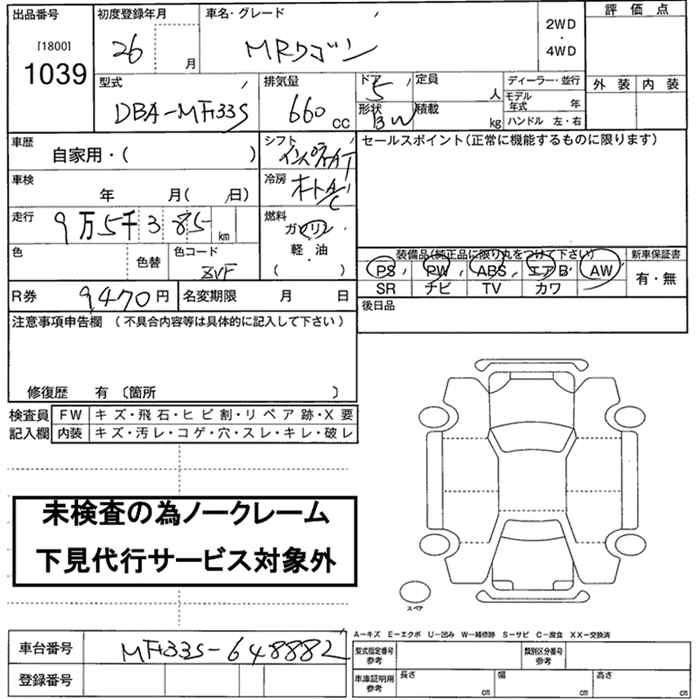 出品番号 初度登録年月 車名・グレード 評価点
[1800] 26 月 MRワゴン 2WD・4WD
1039
型式 排気量 ドア 5 定員 人 ディーラー・並行 外装 内装
DBA-MF33S 660 CC 形状 BW 積載 kg モデル年式 年
ハンドル 左・右
車歴 自家用・( ) シフト インパネAT セールスポイント(正常に機能するものに限ります)
車検 年 月( 日) 冷房 オートA/C
走行 9万5千385 km 燃料 ガソリン
軽・油
( )
色 色替 色コード ZVF
装備品(純正品に限り丸をつけて下さい) 新車保証書
PS PW ABS エアB AW 有・無
SR ナビ TV カワ
R券 9470円 名変期限 月 日 後日品
注意事項申告欄 (不具合内容等は具体的に記入して下さい)
修復歴 有〔箇所 〕
検査員 FW キズ・飛石・ヒビ割・リペア跡・X要
記入欄 内装 キズ・汚レ・コゲ・穴・スレ・キレ・破レ
未検査の為ノークレーム
下見代行サービス対象外
スペア
A−キズ E−エクボ U−凹み W−補修跡 S−サビ C−腐食 XX−交換済
車台番号 MF33S-648882 型式指定番号 参考 類別区分番号 参考
登録番号 車庫証明用 参考 長さ cm 幅 cm 高さ cm